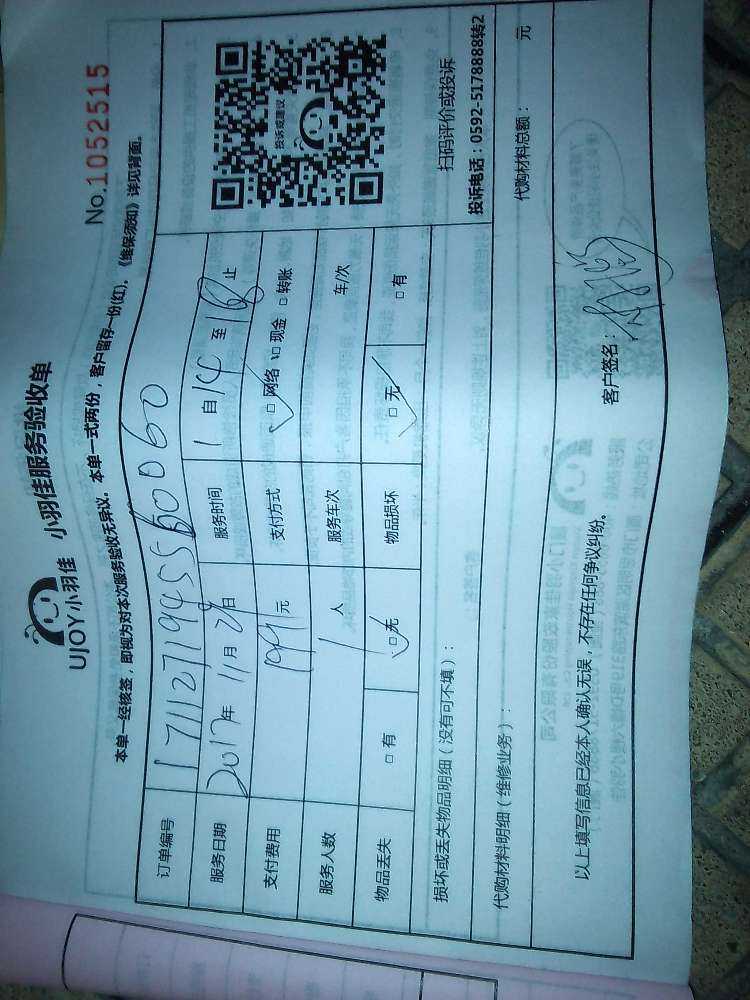 UJOY小羽佳 小羽佳服务验收单
No.1052515
本单一经核签，即视为对本次服务验收无异议。本单一式两份，客户留存一份(红)，《维保须知》详见背面。
订单编号 1711271945560060
服务日期 2017年 11月 29日 服务时间 自14至18止
支付费用 199元 支付方式 □网络 □现金 □转账
服务人数 1人 服务车次 车/次
物品丢失 □有 □无 物品损坏 □无 □有
投诉或建议
扫码评价或投诉
投诉电话：0592-5178888转2
损坏或丢失物品明细（没有可不填）：
代购材料明细（维修业务）： 代购材料总额： 元
以上填写信息已经本人确认无误，不存在任何争议纠纷。
客户签名：